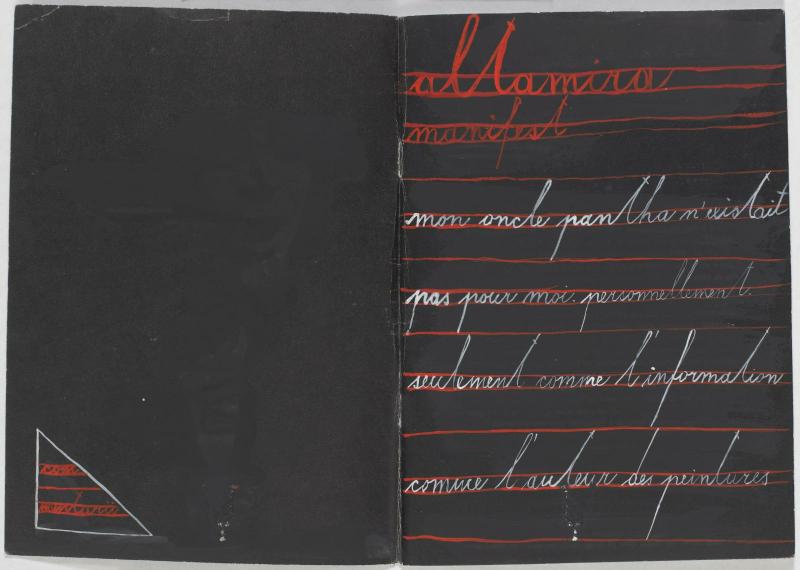 com
altamira
manifest
mon oncle pantha n'existait
pas pour moi personnellement.
seulement comme l'information
comme l'auteur des peintures